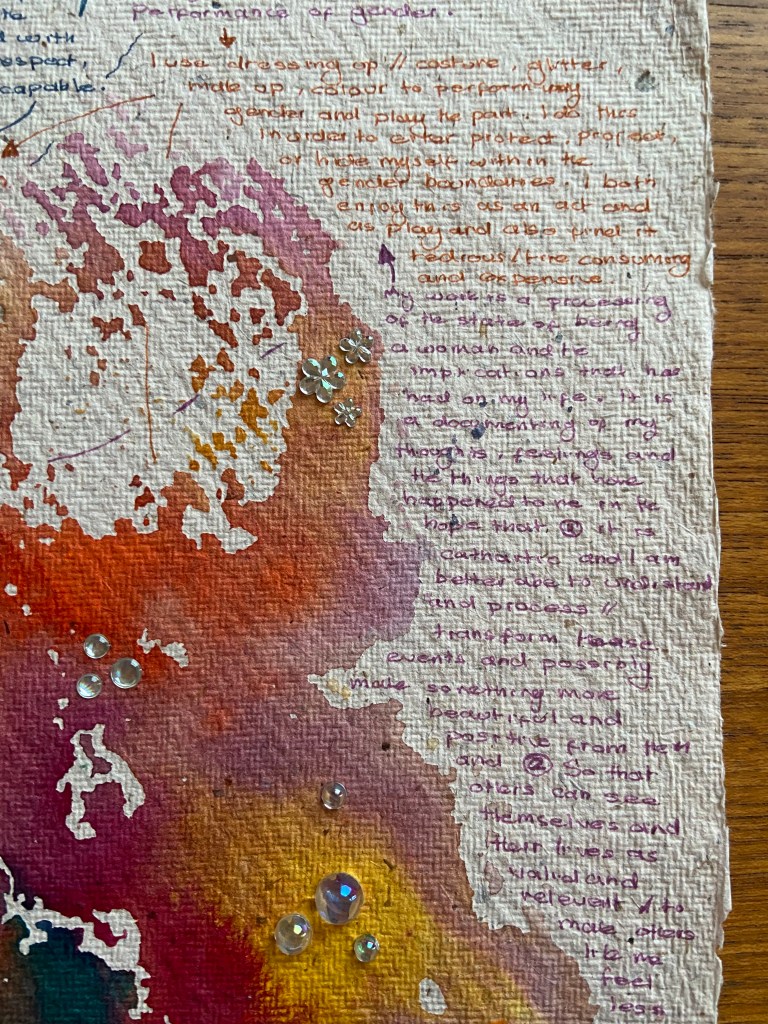 performance of gender.
with
respect,
capable.
I use dressing up // costume, glitter,
make up, colour to perform my
gender and play the part. I do this
in order to either protect, project,
or hide myself within the
gender boundaries. I both
enjoy this as an act and
as play and also find it
tedious/time consuming
and expensive.
My work is a processing
of the state of being
a woman and the
implications that has
had on my life. It is
a documenting of my
thoughts, feelings and
the things that have
happened to me in the
hope that ① it is
cathartic and I am
better able to understand
and process //
transform these
events and possibly
make something more
beautiful and
positive from them
and ② So that
others can see
themselves and
their lives as
valid and
relevent // to
make others
like me
feel
less